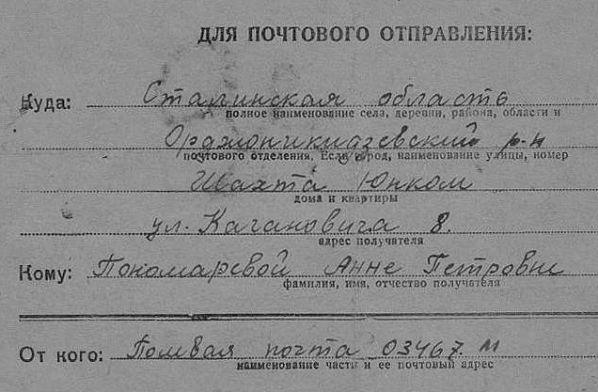 ДЛЯ ПОЧТОВОГО ОТПРАВЛЕНИЯ:
Куда: Сталинская область
полное наименование села, деревни, района, области и
Орджоникидзевский р-н
почтового отделения. Если город, наименование улицы, номер
Шахта Юнком
дома и квартиры
ул. Кагановича 8.
адрес получателя
Кому: Пономаревой Анне Петровне
фамилия, имя, отчество получателя
От кого: Полевая почта 03467 м
наименование части и ее почтовый адрес